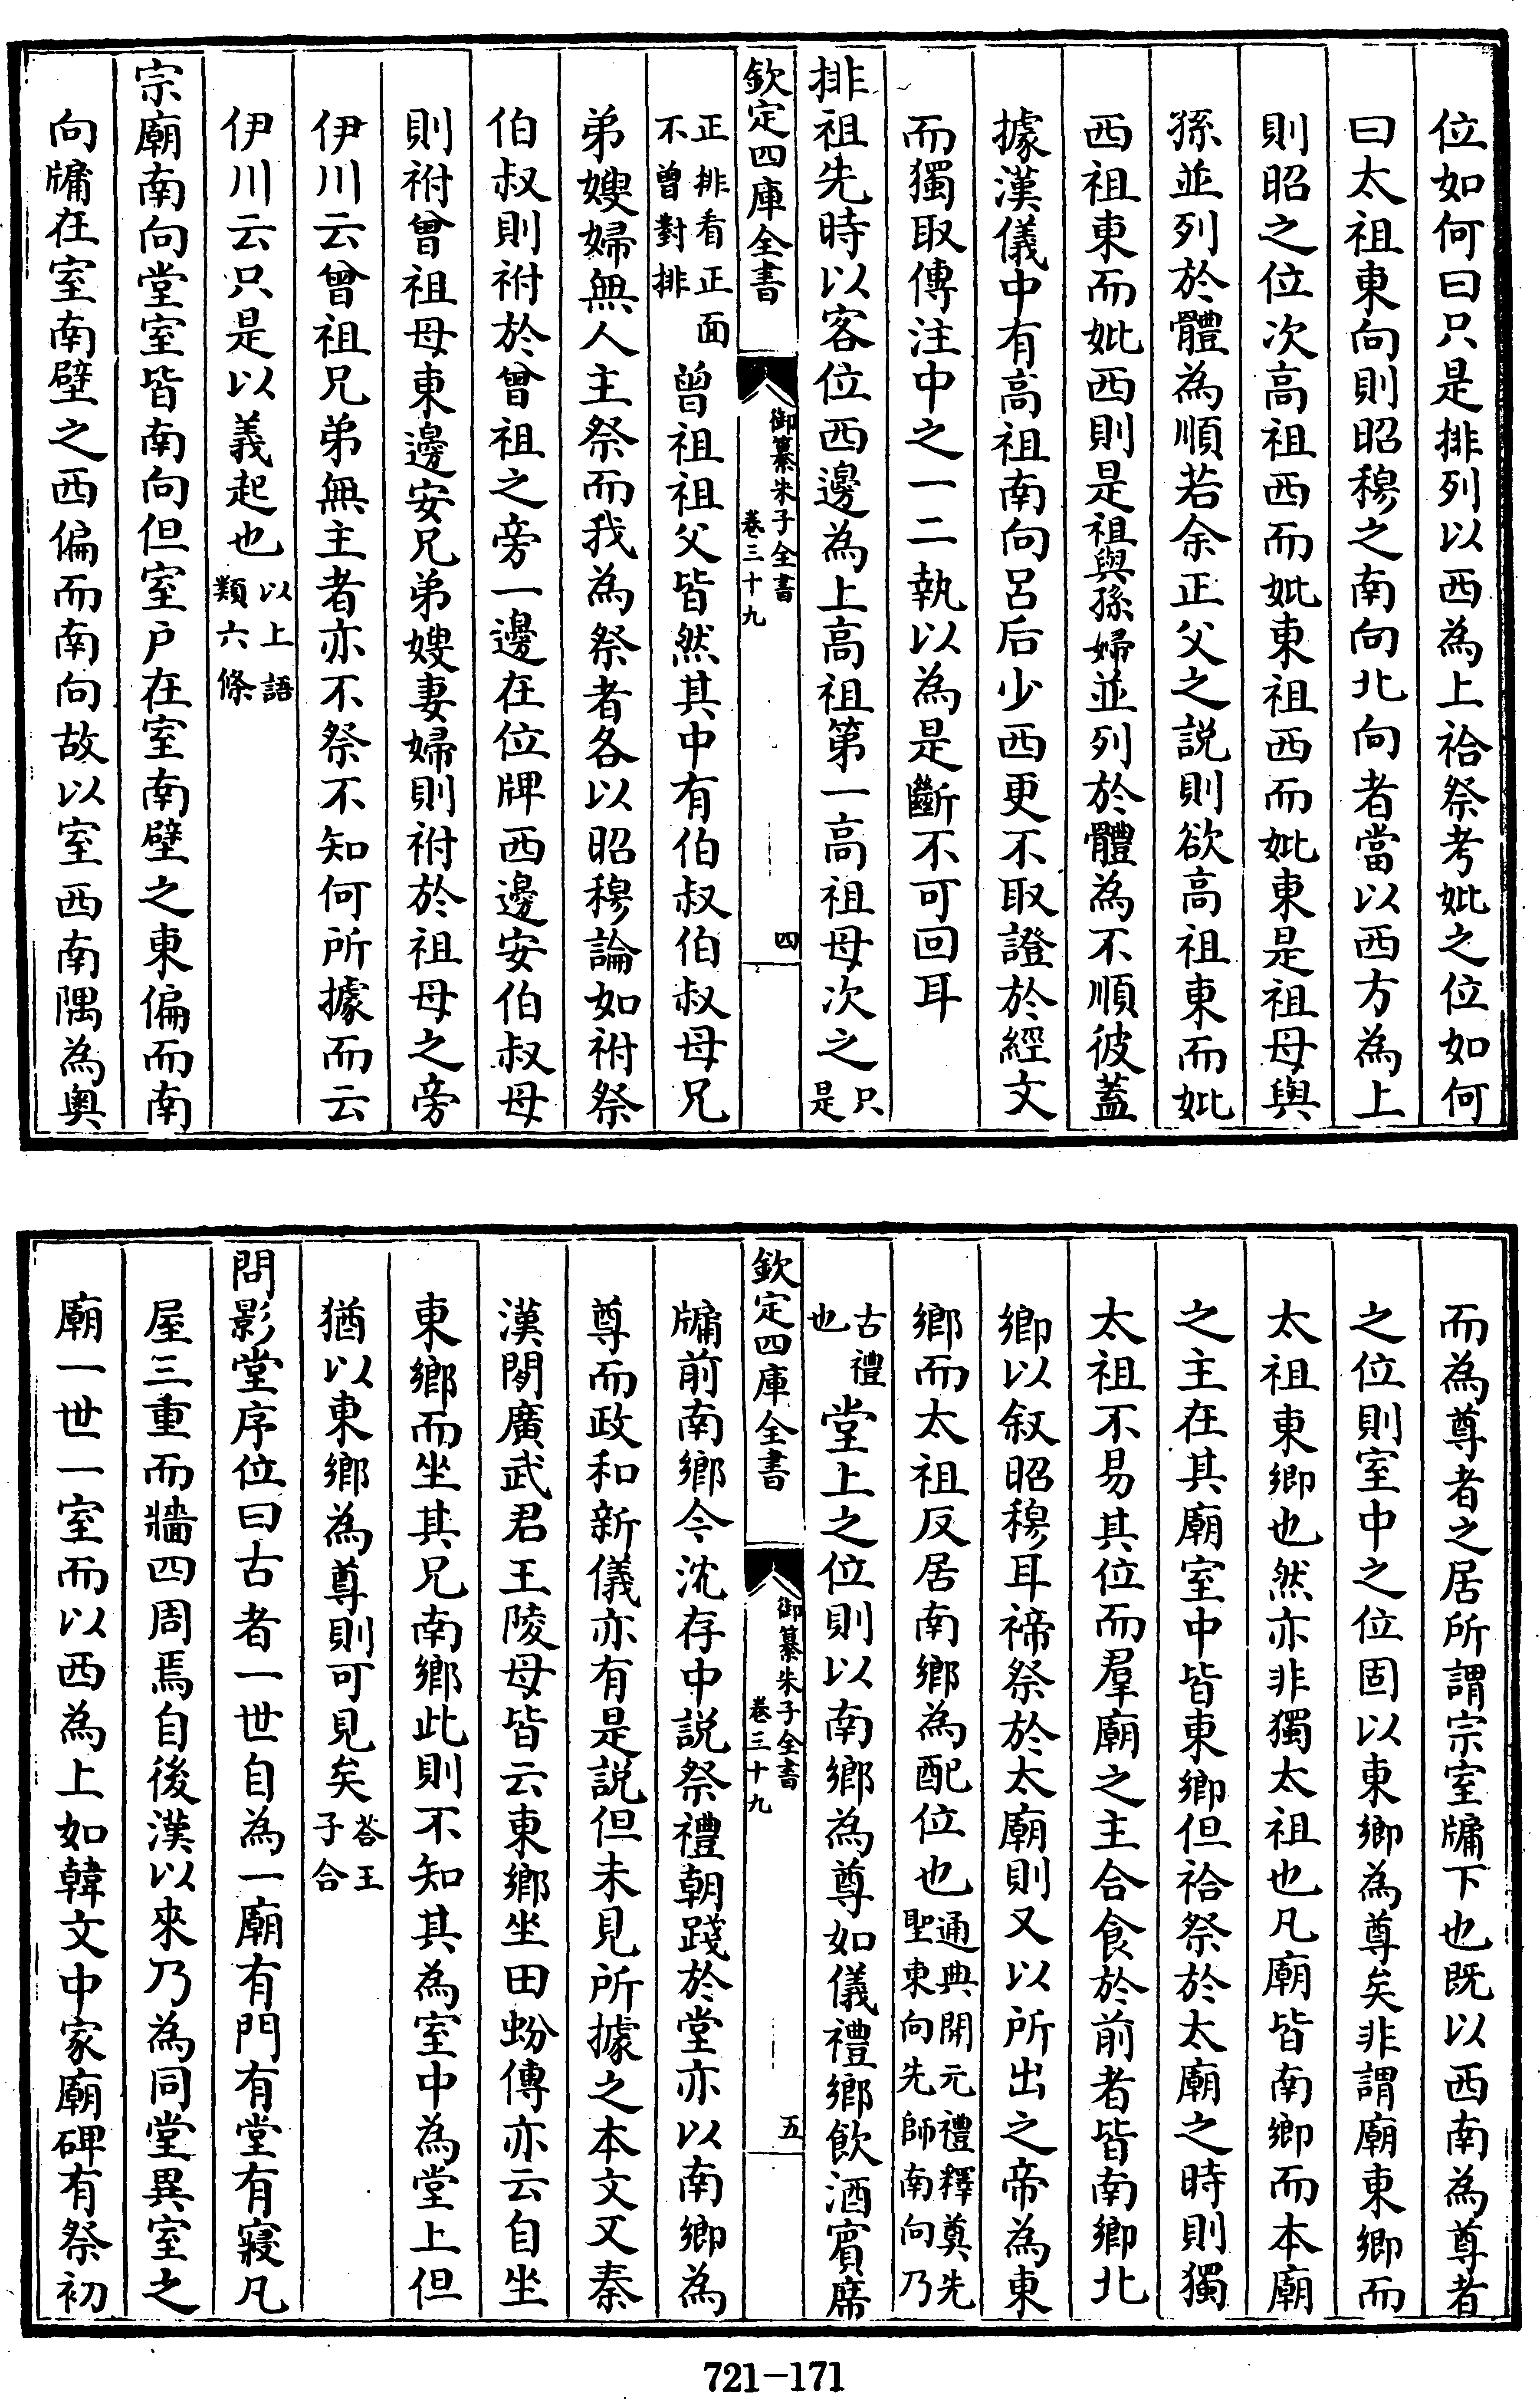 位如何曰只是排列以西為上祫祭考妣之位如何
曰太祖東向則昭穆之南向北向者當以西方為上
則昭之位次高祖西而妣東祖西而妣東是祖母與
孫並列於體為順若余正父之説則欲高祖東而妣
西祖東而妣西則是祖與孫婦並列於體為不順彼蓋
據漢儀中有高祖南向吕后少西更不取證於經文
而獨取傳注中之一二執以為是斷不可回耳
排祖先時以客位西邊為上高祖第一高祖母次之只是
欽定四庫全書
御纂朱子全書
卷三十九
四
正排看正面不曾對排曾祖祖父皆然其中有伯叔伯叔母兄
弟嫂婦無人主祭而我為祭者各以昭穆論如祔祭
伯叔則祔於曾祖之旁一邊在位牌西邊安伯叔母
則祔曾祖母東邊安兄弟嫂妻婦則祔於祖母之旁
伊川云曾祖兄弟無主者亦不祭不知何所據而云
伊川云只是以義起也以上語類六條
宗廟南向堂室皆南向但室户在室南壁之東偏而南
向牖在室南壁之西偏而南向故以室西南隅為奥
而為尊者之居所謂宗室牖下也既以西南為尊者
之位則室中之位固以東鄉為尊矣非謂廟東鄉而
太祖東鄉也然亦非獨太祖也凡廟皆南鄉而本廟
之主在其廟室中皆東鄉但祫祭於太廟之時則獨
太祖不易其位而羣廟之主合食於前者皆南鄉北
鄉以叙昭穆耳禘祭於太廟則又以所出之帝為東
鄉而太祖反居南鄉為配位也通典開元禮釋奠先聖東向先師南向乃
古禮也堂上之位則以南鄉為尊如儀禮鄉飲酒賓席
欽定四庫全書
御纂朱子全書
卷三十九
五
牖前南鄉今沈存中説祭禮朝踐於堂亦以南鄉為
尊而政和新儀亦有是説但未見所據之本文又秦
漢間廣武君王陵母皆云東鄉坐田蚡傳亦云自坐
東鄉而坐其兄南鄉此則不知其為室中為堂上但
猶以東鄉為尊則可見矣荅王子合
問影堂序位曰古者一世自為一廟有門有堂有寢凡
屋三重而牆四周焉自後漢以來乃為同堂異室之
廟一世一室而以西為上如韓文中家廟碑有祭初
721-171